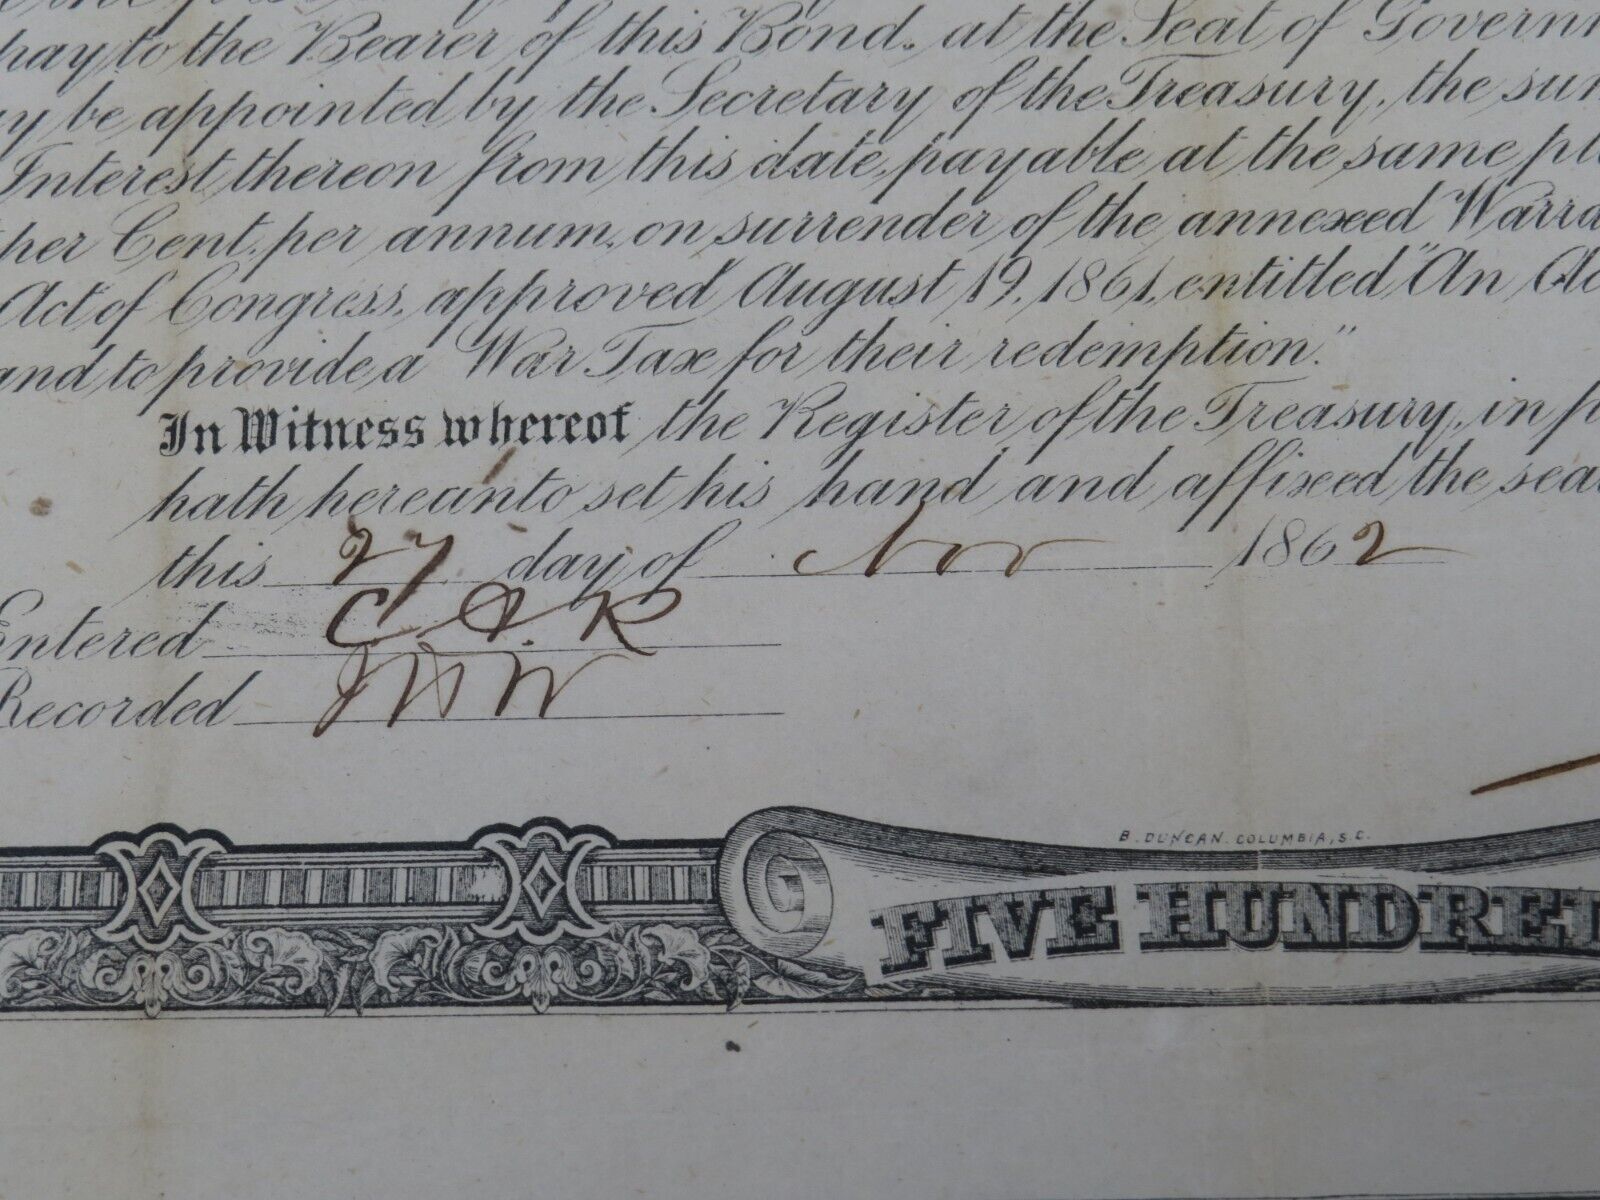 pay to the Bearer of this Bond, at the Seat of
be appointed by the Secretary of the Treasury, the
Interest thereon from this date, payable at the same
per Cent. per annum, on surrender of the annexed
Act of Congress, approved August 19, 1861, entitled "An
and to provide a War Tax for their redemption."
In Witness whereof the Register of the Treasury, in
hath hereunto set his hand and affixed the
this 27 day of Nov 1862
Entered C. A. R
Recorded
B. DUNCAN. COLUMBIA, S.C.
FIVE HUNDRED